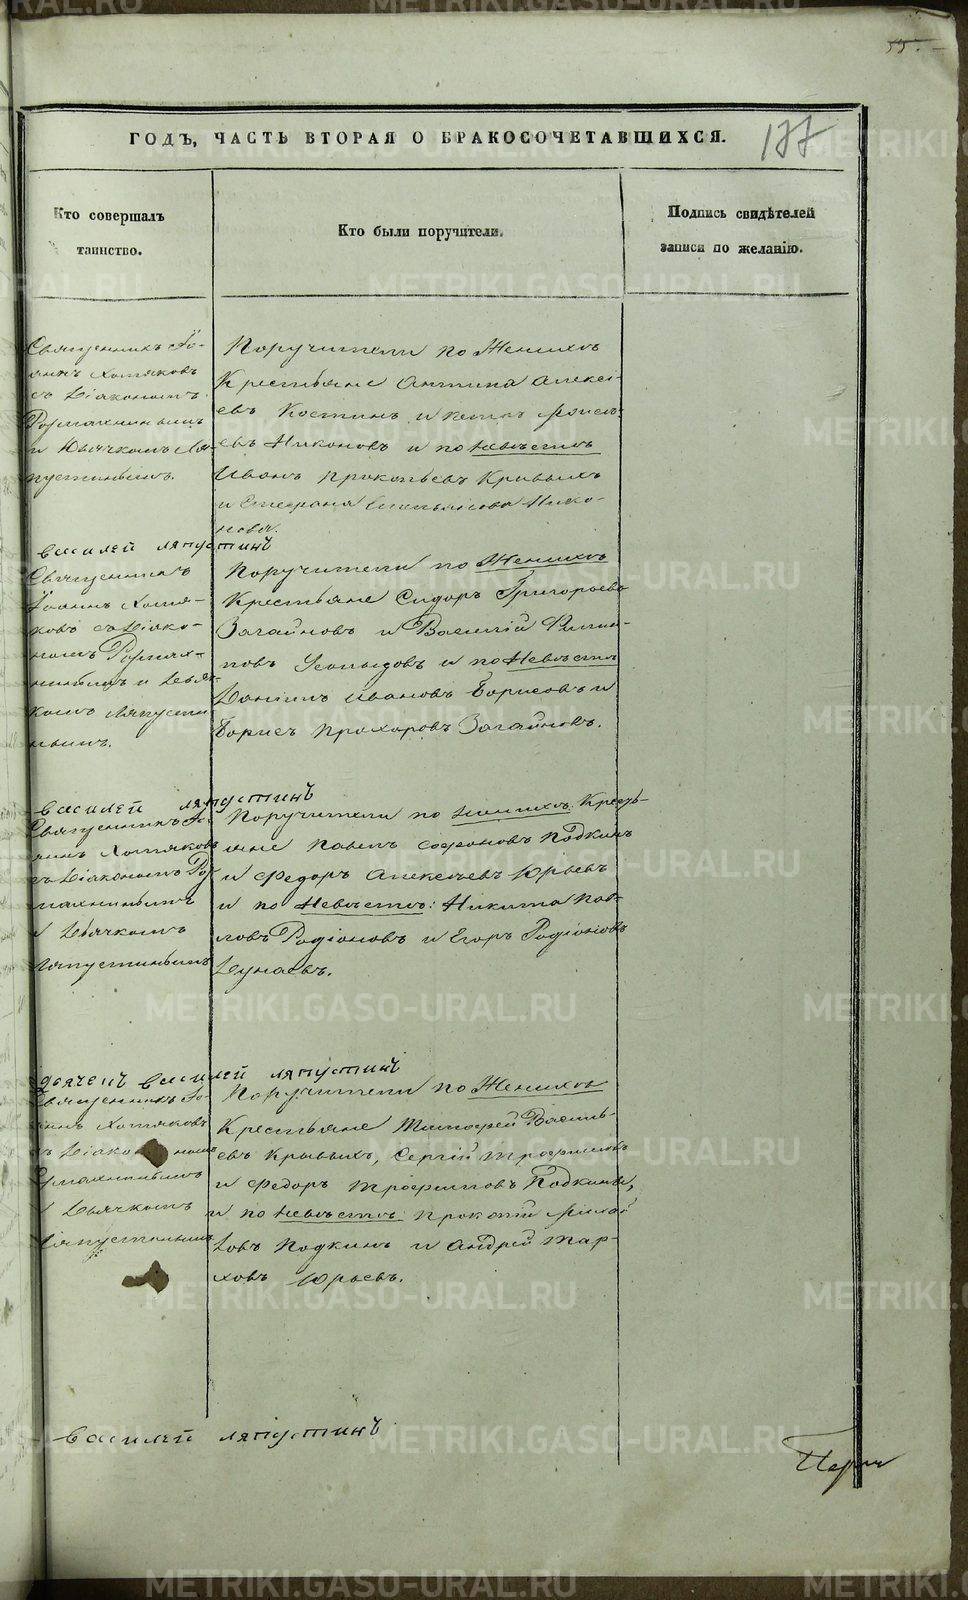 55.
ГОДЪ, ЧАСТЬ ВТОРАЯ О БРАКОСОЧЕТАВШИХСЯ.
177
Кто совершалъ
таинство.
Кто были поручители.
Подпись свидѣтелей
записи по желанію.
Священникъ Іо-
аннъ Хомяковъ
съ Діакономъ
и Дьячкомъ Ля-
пустинымъ.
Поручители по Женихѣ
Крестьяне Антипа Алексі-
евъ Костинъ и
евъ Никоновъ и по Невѣстѣ
Иванъ Прокопьевъ Кривыхъ
и Нико-
новъ.
Василей Ляпустинъ
Священникъ
Іоаннъ Хомя-
ковъ съ Діако-
номъ
и Дьяч-
комъ Ляпусти
нымъ.
Поручители по Женихѣ
Крестьяне Сидоръ Григорьевъ
Загайновъ и Василій Филип-
повъ и по Невѣстѣ
Даніилъ Ивановъ Борисовъ и
Борисъ Прохоровъ Загайновъ.
Василей Ляпустинъ
Священникъ Іо-
аннъ Хомяковъ
съ Діакономъ
и Дьячкомъ
Ляпустинымъ
Поручители по Женихѣ Кресть-
яне Павелъ Софроновъ Подкинъ
и Федоръ Алексѣевъ Юрьевъ
и по Невѣстѣ: Никита Пав-
ловъ Родіоновъ и Егоръ Родіоновъ
Дунаевъ.
дьячекъ Василей Ляпустинъ
Священникъ Іо-
аннъ Хомяковъ
съ Діакономъ
и Дьячкомъ
Ляпустинымъ
Поручители по Женихѣ
Крестьяне Тимофей Василь-
евъ Кривыхъ, Сергій Трофимовъ
и Федоръ Трофимовъ Подкины,
и по Невѣстѣ: Прокопій Михай
ловъ Подкинъ и Андрей Мар-
ковъ Юрьевъ.
Василей Ляпустинъ
METRIKI.GASO-URAL.RU